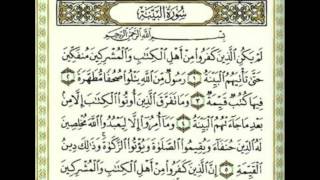 سُورَةُ الْبَيِّنَةِ
بِسْمِ اللَّهِ الرَّحْمَٰنِ الرَّحِيمِ
لَمْ يَكُنِ الَّذِينَ كَفَرُوا مِنْ أَهْلِ الْكِتَٰبِ وَالْمُشْرِكِينَ مُنفَكِّينَ
حَتَّىٰ تَأْتِيَهُمُ الْبَيِّنَةُ ١ رَسُولٌ مِّنَ اللَّهِ يَتْلُوا صُحُفًا مُّطَهَّرَةً ٢
فِيهَا كُتُبٌ قَيِّمَةٌ ٣ وَمَا تَفَرَّقَ الَّذِينَ أُوتُوا الْكِتَٰبَ إِلَّا مِن
بَعْدِ مَا جَاءَتْهُمُ الْبَيِّنَةُ ٤ وَمَا أُمِرُوا إِلَّا لِيَعْبُدُوا اللَّهَ مُخْلِصِينَ
لَهُ الدِّينَ حُنَفَاءَ وَيُقِيمُوا الصَّلَوٰةَ وَيُؤْتُوا الزَّكَوٰةَ وَذَٰلِكَ دِينُ
الْقَيِّمَةِ ٥ إِنَّ الَّذِينَ كَفَرُوا مِنْ أَهْلِ الْكِتَٰبِ وَالْمُشْرِكِينَ